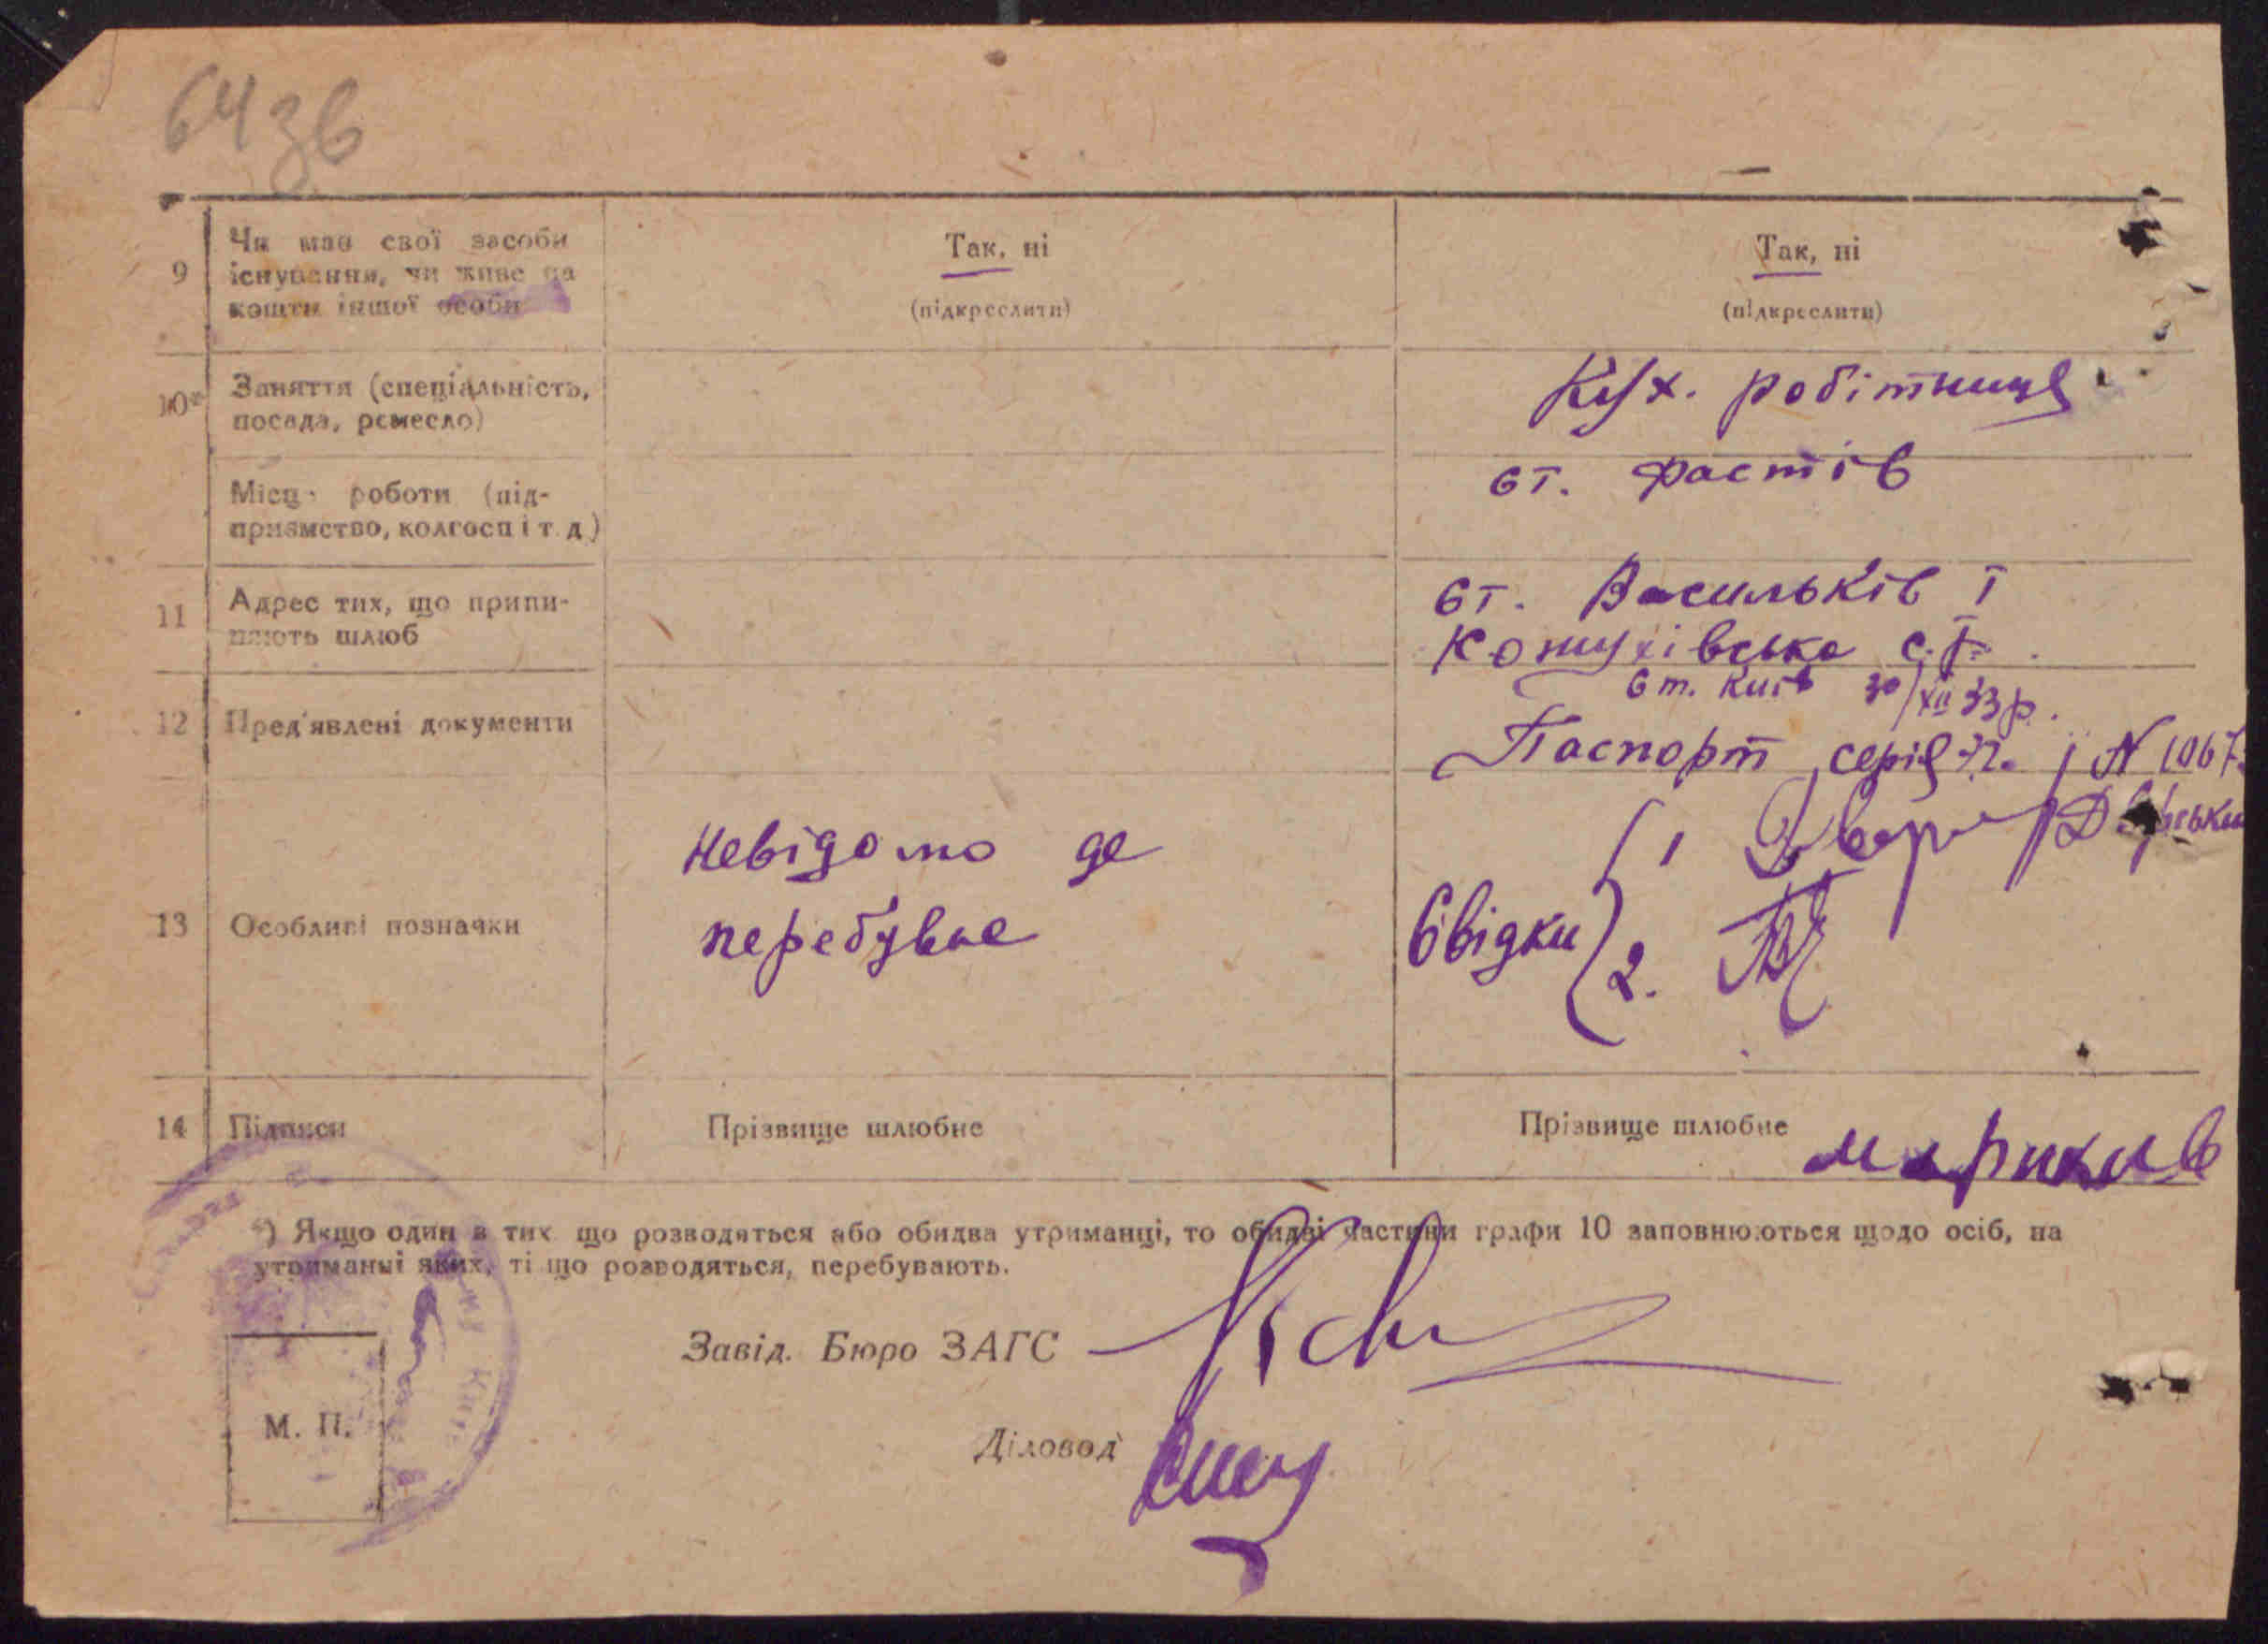 64 зв
9
Чи має свої засоби
існування, чи живе на
кошти іншої особи
Так, ні
(підкреслити)
Так, ні
(підкреслити)
10*
Заняття (спеціальність,
посада, ремесло)
Кух. робітниця
Місце роботи (під-
приємство, колгосп і т. д.)
ст. Фастів
11
Адрес тих, що припи-
няють шлюб
ст. Васильків I
Кожухівська с.р.
12
Пред'явлені документи
ст. Київ 30/XII 33 р.
Паспорт серія N 1067
13
Особливі позначки
Невідомо де
перебуває
Свідки
1
2.
14
Підписи
Прізвище шлюбне
Прізвище шлюбне
*) Якщо один з тих що розводяться або обидва утриманці, то обидві частини графи 10 заповнюються щодо осіб, на
утриманні яких, ті що розводяться, перебувають.
Завід. Бюро ЗАГС
М. П.
Діловод